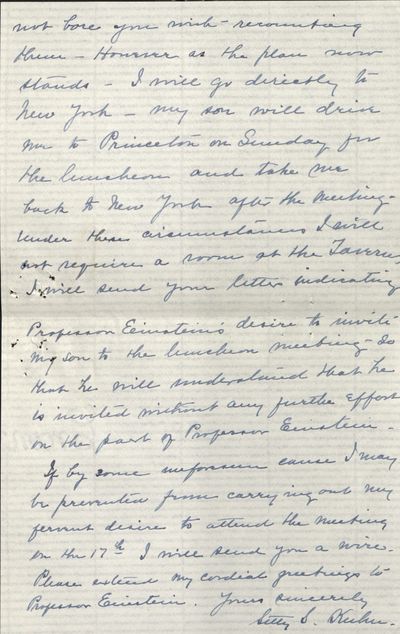 not bore you with - recounting
them - However as the plan now
stands - I will go directly to
New York - my son will drive
me to Princeton on Sunday for
the luncheon and take me
back to New York after the meeting -
Under these circumstances I will
not require a room at the Tavern,
I will send your letter indicating
Professor Einstein's desire to invite
my son to the luncheon meeting - So
that he will understand that he
is invited without any further effort
on the part of Professor Einstein -
If by some unforseen cause I may
be prevented from carrying out my
fervent desire to attend the meeting
on the 17th I will send you a wire.
Please extend my cordial greetings to
Professor Einstein. Yours sincerely
S. Kuhn.